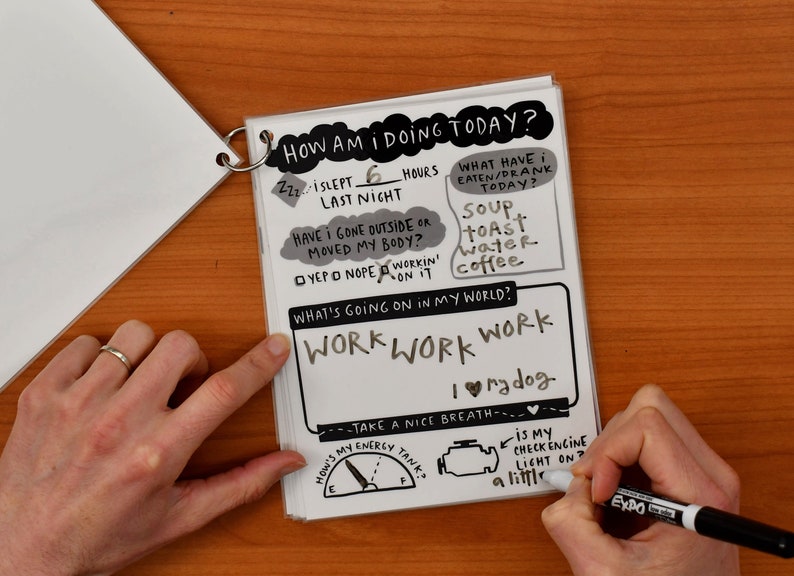 HOW AM i DOING TODAY?
ZZZ... i SLEPT 6 HOURS
LAST NIGHT
WHAT HAVE i
EATEN/DRANK
TODAY?
SOUP
tOAST
water
coffee
HAVE i GONE OUTSIDE OR
MOVED MY BODY?
YEP NOPE WORKIN'
ON iT
WHAT'S GOING ON iN MY WORLD?
WORK WORK WORK
I ♥ my dog
TAKE A NICE BREATH
HOW'S MY ENERGY TANK?
E F
iS MY
CHECK ENGINE
LIGHT ON?
a little
EXPO